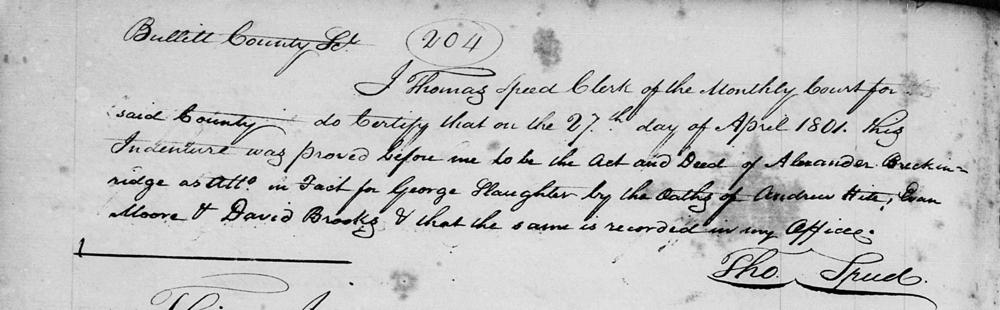 Bullitt County Sct.
204
I Thomas Speed Clerk of the Monthly Court for
said County do Certify that on the 27th day of April 1801. this
Indenture was proved before me to be the Act and Deed of Alexander Breckin=
ridge as Atto. in Fact for George Slaughter by the Oaths of Andrew Hite, Evan
Moore & David Brooks & that the same is recorded in my Office.
Tho. Speed.